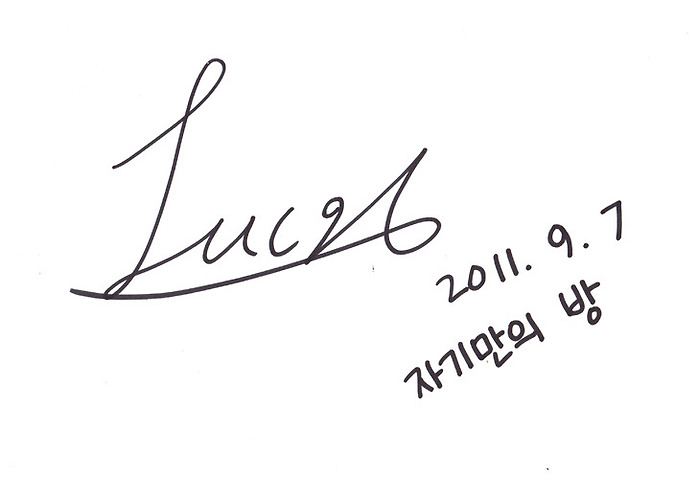 Lucas
2011. 9. 7
자기만의 방